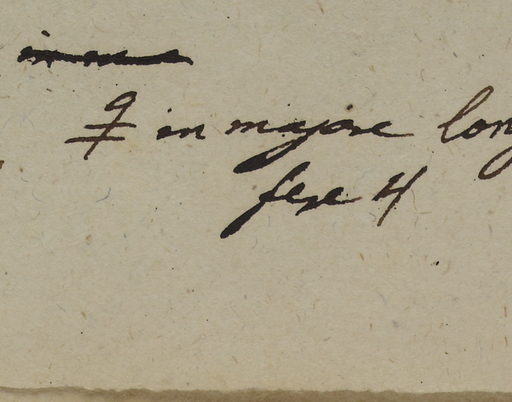 ♀ in majore long
fere 4